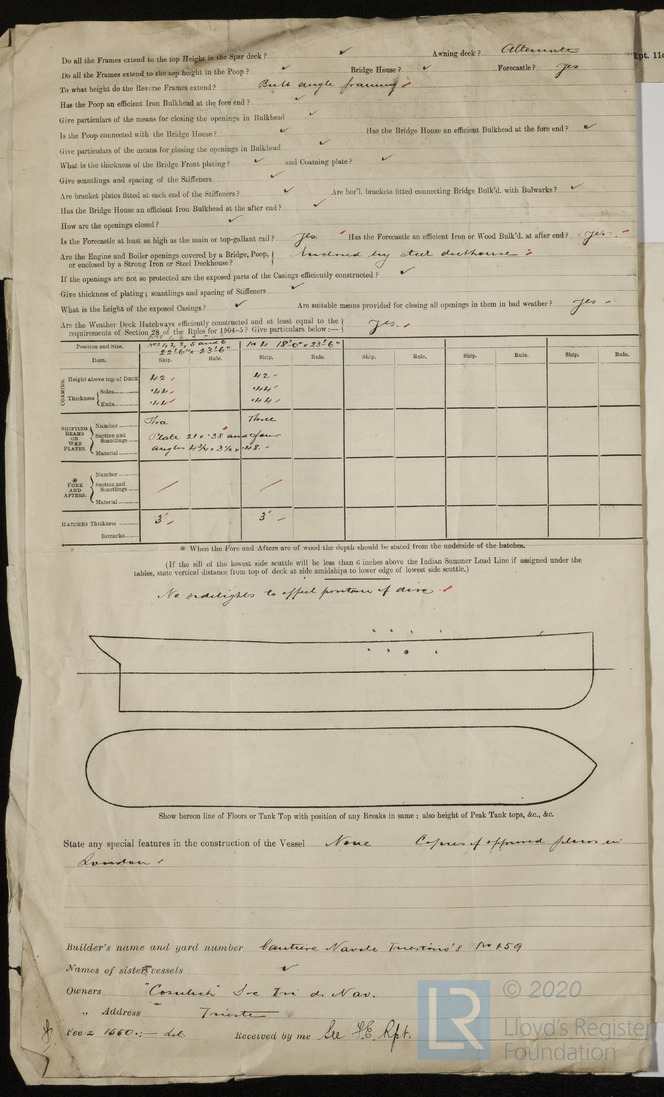 Do all the Frames extend to the top Height in the Spar deck? ✓ Awning deck? Alternate
Rpt. 11c
Do all the Frames extend to the top height in the Poop? ✓ Bridge House? ✓ Forecastle? yes
To what height do the Reverse Frames extend? Bulb angle framing
Has the Poop an efficient Iron Bulkhead at the fore end? ✓
Give particulars of the means for closing the openings in Bulkhead ✓
Is the Poop connected with the Bridge House? ✓ Has the Bridge House an efficient Bulkhead at the fore end? ✓
Give particulars of the means for closing the openings in Bulkhead ✓
What is the thickness of the Bridge Front plating? ✓ and Coaming plate? ✓
Give scantlings and spacing of the Stiffeners ✓
Are bracket plates fitted at each end of the Stiffeners? ✓ Are hor'l. brackets fitted connecting Bridge Bulk'd. with Bulwarks? ✓
Has the Bridge House an efficient Iron Bulkhead at the after end? ✓
How are the openings closed? ✓
Is the Forecastle at least as high as the main or top-gallant rail? yes Has the Forecastle an efficient Iron or Wood Bulk'd. at after end? yes
Are the Engine and Boiler openings covered by a Bridge, Poop, or enclosed by a Strong Iron or Steel Deckhouse? by steel deckhouse
If the openings are not so protected are the exposed parts of the Casings efficiently constructed? ✓
Give thickness of plating; scantlings and spacing of Stiffeners ✓
What is the height of the exposed Casings? ✓ Are suitable means provided for closing all openings in them in bad weather? yes
Are the Weather Deck Hatchways efficiently constructed and at least equal to the
requirements of Section 28 of the Rules for 1904-5? Give particulars below:— yes.
Position and Size. Nos 1, 2, 3, 5 and 6 22'.6" x 23'.6" No 4 18'.0" x 23'.6"
Item. Ship. Rule. Ship. Rule. Ship. Rule. Ship. Rule. Ship. Rule.
COAMING. Height above top of DECK 42 42
Thickness Sides .44 .44
Ends .44 .44
SHIFTING BEAMS OR WEB PLATES. Number Three
Section and Scantlings Plate 21 x .38 and four
Material angles
* FORE AND AFTERS. Number
Section and Scantlings
Material
HATCHES Thickness 3" 3"
Remarks
* When the Fore and Afters are of wood the depth should be stated from the underside of the hatches.
(If the sill of the lowest side scuttle will be less than 6 inches above the Indian Summer Load Line if assigned under the
tables, state vertical distance from top of deck at side amidships to lower edge of lowest side scuttle.)
No sidelights to affect position of disc
Show hereon line of Floors or Tank Top with position of any Breaks in same; also height of Peak Tank tops, &c., &c.
State any special features in the construction of the Vessel None Copies of approved plans in
London
Builder's name and yard number Cantiere Navale Triestino's No 159
Names of sister vessels ✓
Owners "Cosulich" Soc Tri di Nav.
„ Address Trieste
Fee £ 1660:— Received by me See F.E. Rpt.
LR
© 2020
Lloyd's Register
Foundation